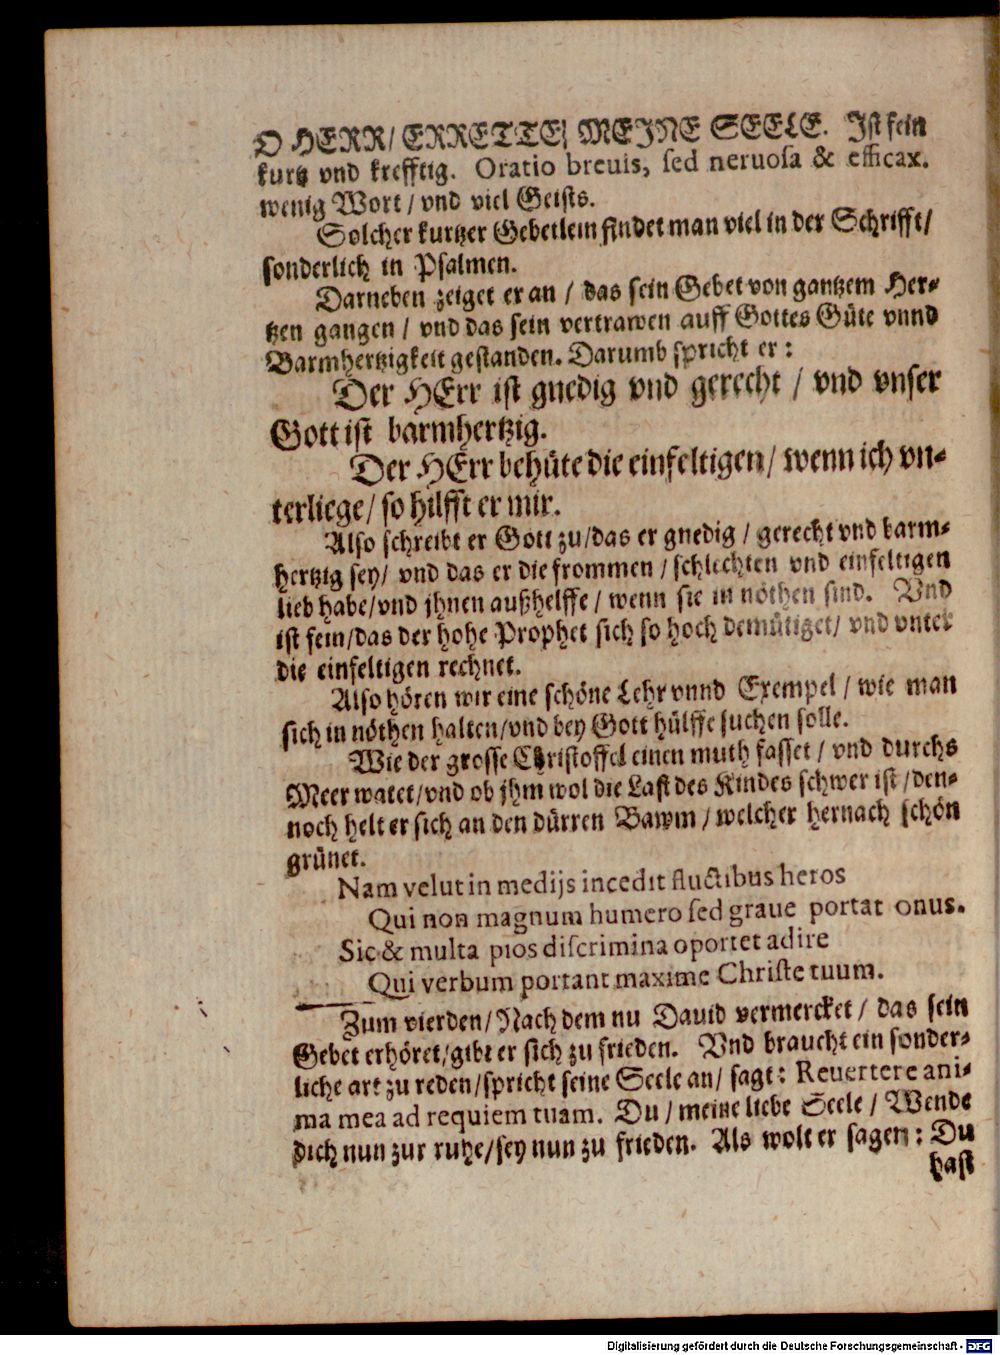 O HERR/ ERRETTE/ MEJNE SEELE. Jst fein
kurtz vnd krefftig. Oratio breuis, ſed neruoſa & efficax.
wenig Wort / vnd viel Geiſts.
Solcher kurtzer Gebetlein findet man viel in der Schrifft/
ſonderlich in Pſalmen.
Darneben zeiget er an / das ſein Gebet von gantzem Her-
tzen gangen / vnd das ſein vertrawen auff Gottes Güte vnnd
Barmhertzigkeit geſtanden. Darumb ſpricht er:
Der HErr iſt gnedig vnd gerecht / vnd vnſer
Gott iſt barmhertzig.
Der HErr behüte die einfeltigen/ wenn ich vn-
terliege/ ſo hilfft er mir.
Alſo ſchreibt er Gott zu/das er gnedig / gerecht vnd barm-
hertzig ſey/ vnd das er die frommen / ſchlechten vnd einfeltigen
lieb habe/vnd jhnen außhelffe / wenn ſie in nöthen ſind. Vnd
iſt fein/das der hohe Prophet ſich ſo hoch demütiget/ vnd vnter
die einfeltigen rechnet.
Alſo hören wir eine ſchöne Lehr vnnd Exempel / wie man
ſich in nöthen halten/vnd bey Gott hülffe ſuchen ſolle.
Wie der groſſe Chriſtoffel einen muth faſſet / vnd durchs
Meer watet/vnd ob jhm wol die Laſt des Kindes ſchwer iſt /den-
noch helt er ſich an den dürren Bawm / welcher hernach ſchön
grünet.
Nam velut in medijs incedit fluctibus heros
Qui non magnum humero ſed graue portat onus.
Sic & multa pios diſcrimina oportet adire
Qui verbum portant maxime Chriſte tuum.
Zum vierden/ Nach dem nu Dauid vermercket / das ſein
Gebet erhöret/gibt er ſich zu frieden. Vnd braucht ein ſonder-
liche art zu reden/ſpricht ſeine Seele an/ ſagt: Reuertere ani-
ma mea ad requiem tuam. Du / meine liebe Seele / Wende
dich nun zur ruhe/ſey nun zu frieden. Als wolt er ſagen: Du
haſt
Digitalisierung gefördert durch die Deutsche Forschungsgemeinschaft - DFG